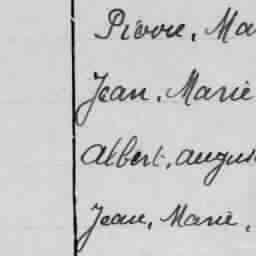 Pierre, Ma
Jean, Marie
Albert, Augus
Jean, Marie,